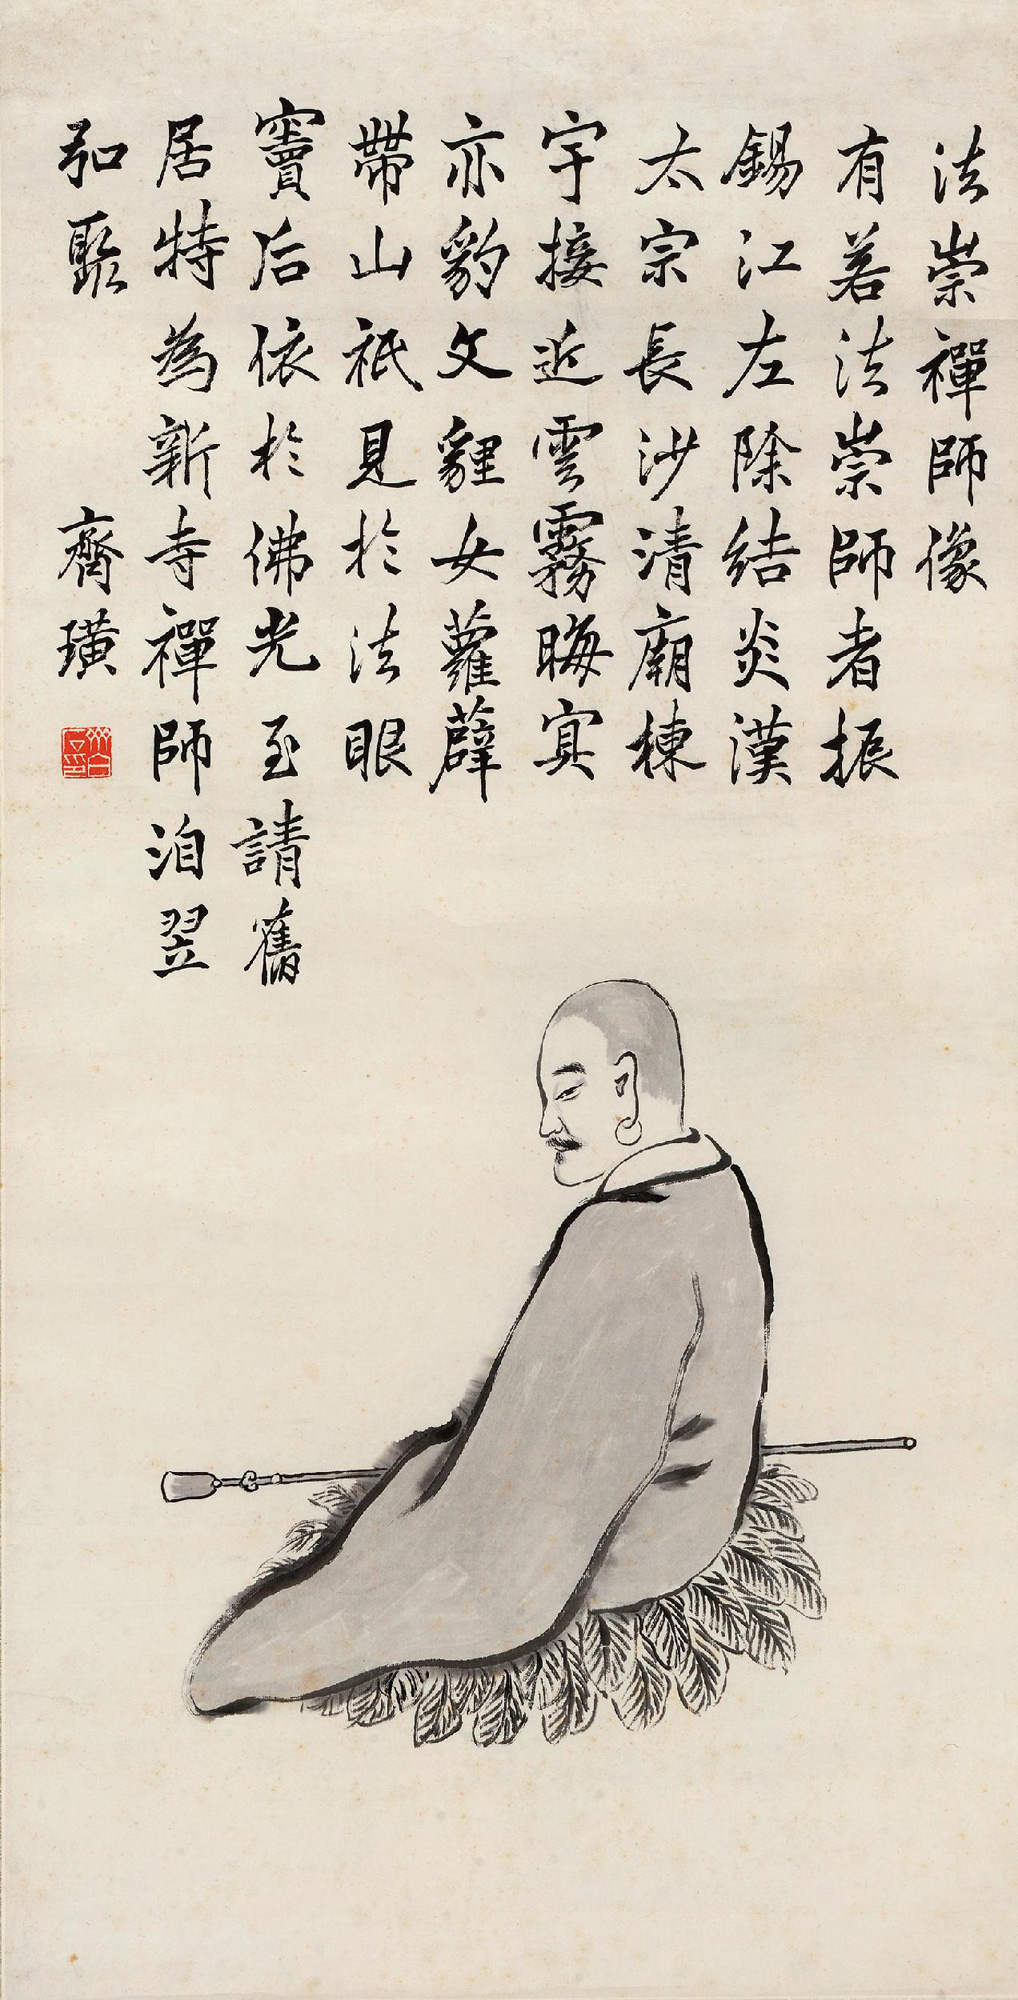 法崇禪師像
有若法崇師者振
錫江左除結炎漢
太宗長沙清廟棟
宇接近雲霧晦寘
亦豹文貍女蘿薜
帶山祇見於法眼
竇后依於佛光至請舊
居特為新寺禪師洎翌
弘聚
齊璜